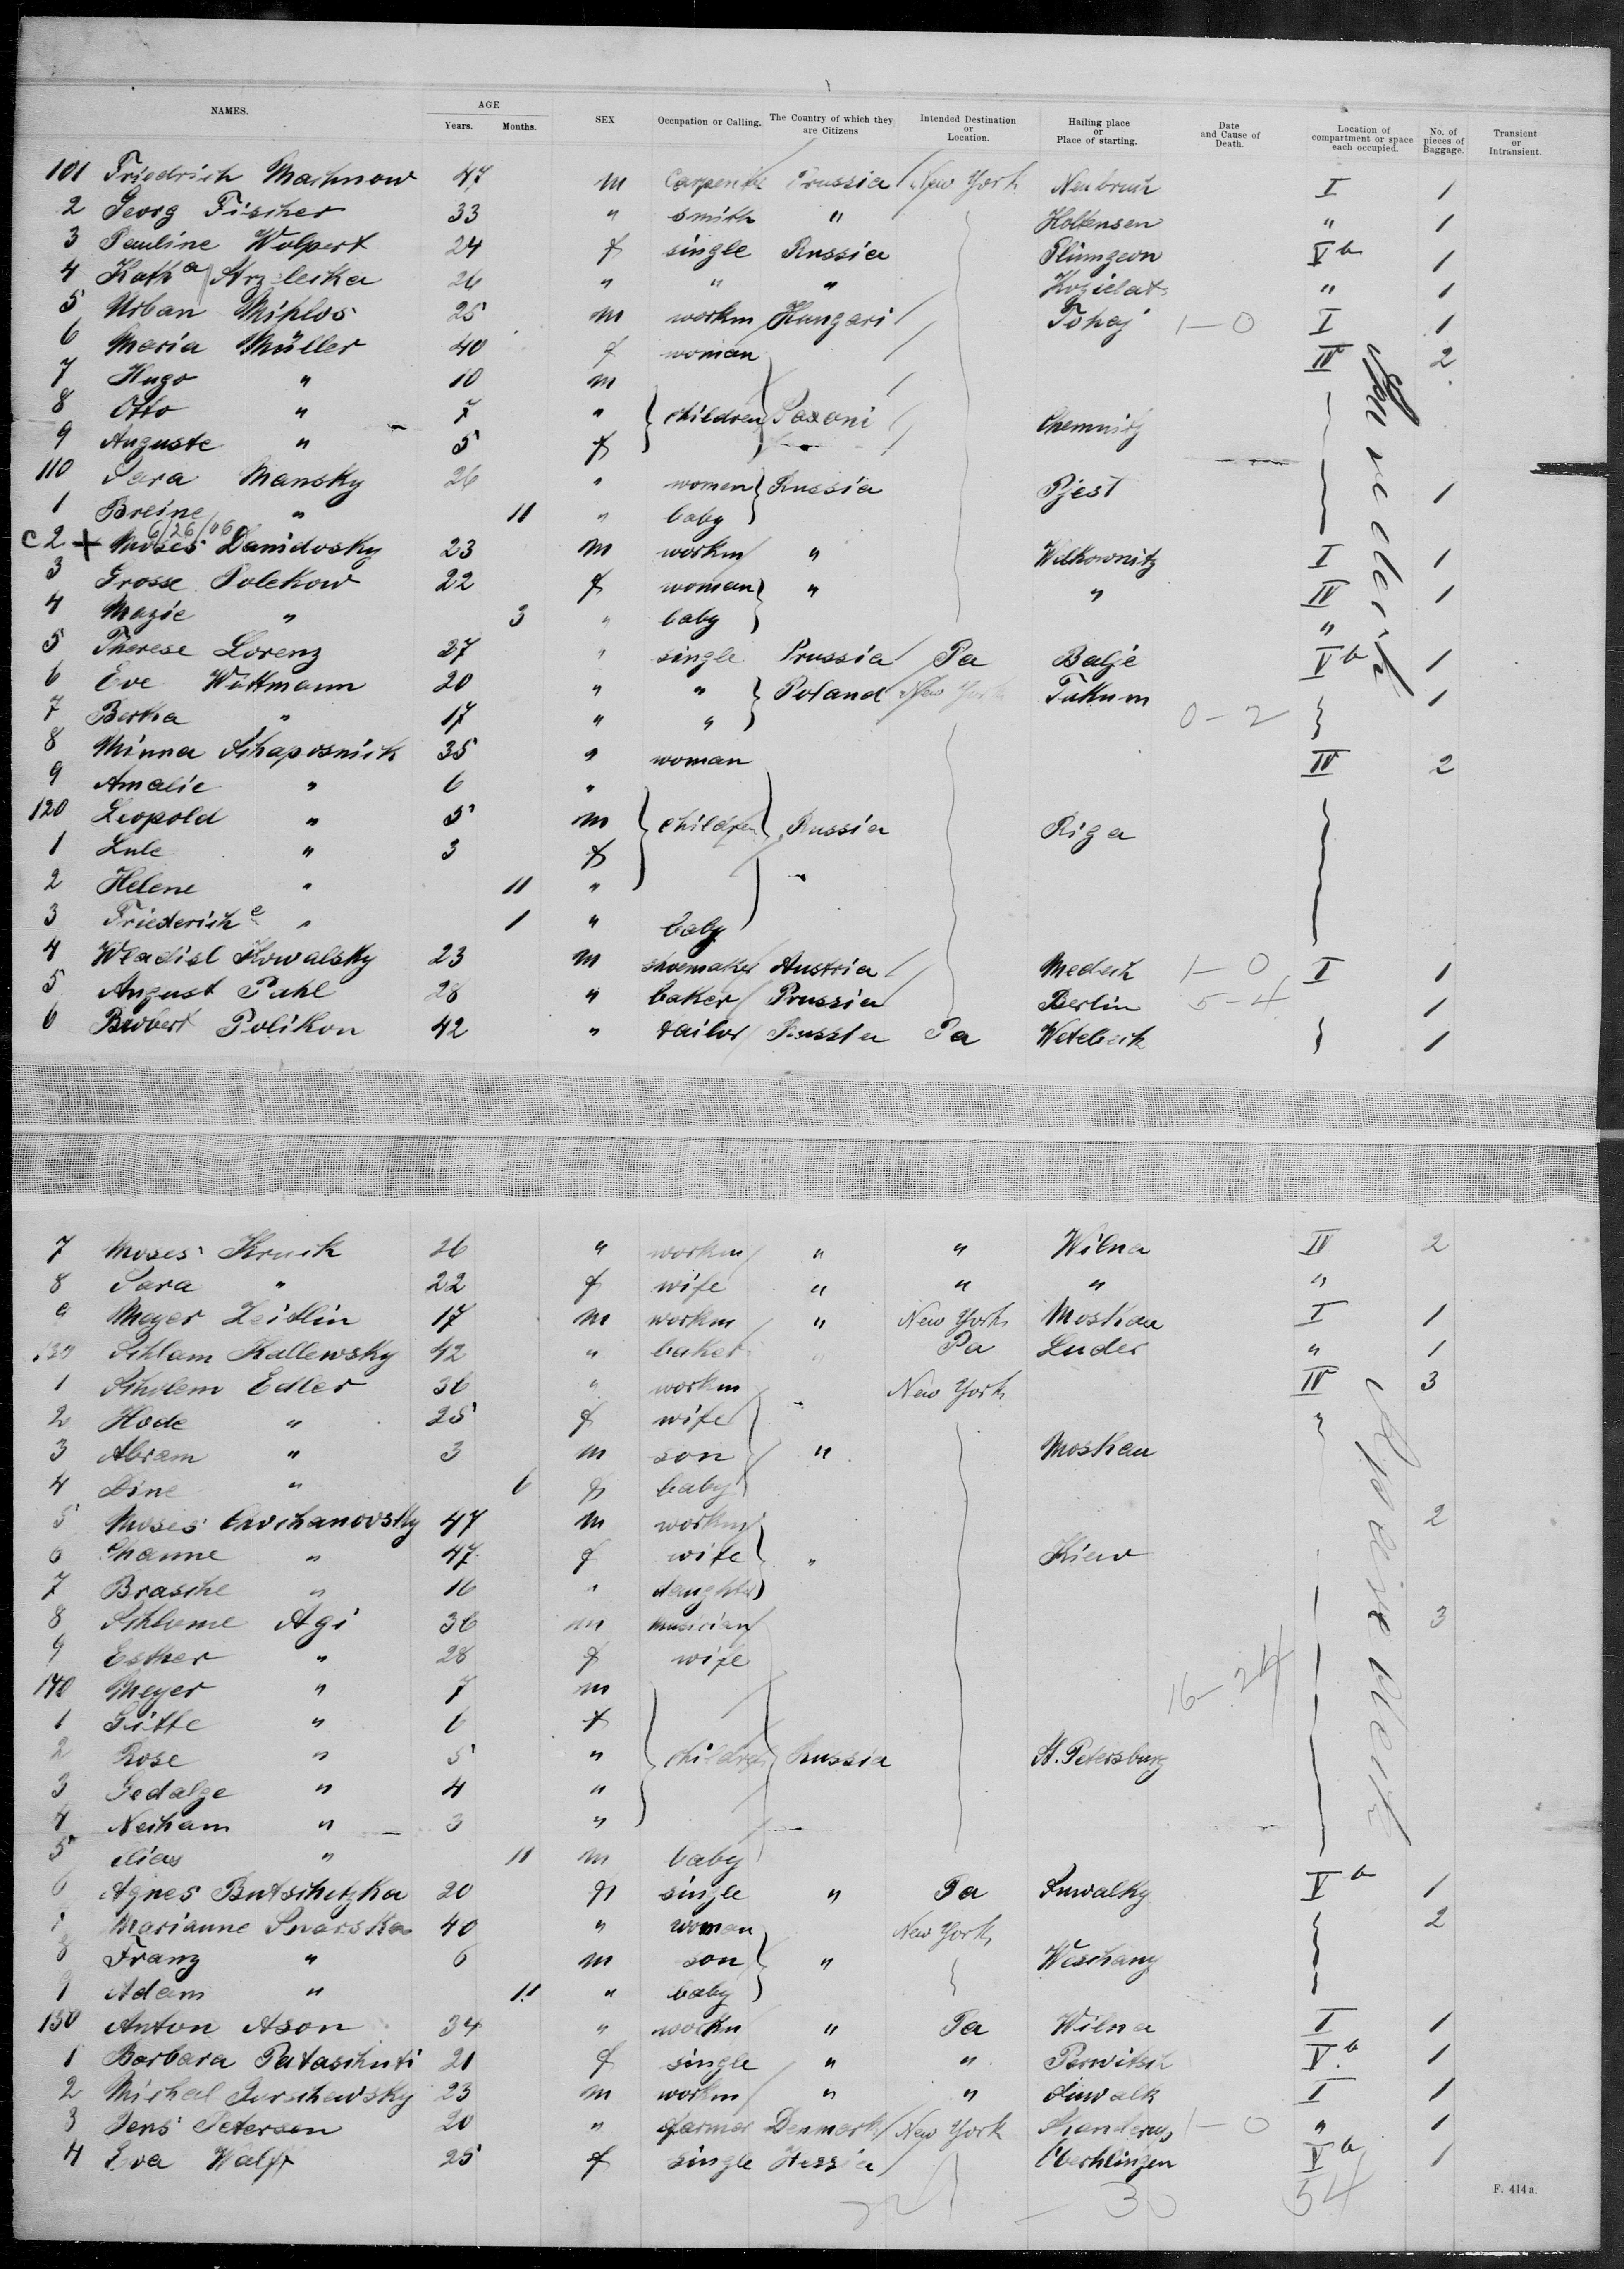 NAMES. AGE Years. Months. SEX Occupation or Calling. The Country of which they are Citizens Intended Destination or Location. Hailing place or Place of starting. Date and Cause of Death. Location of compartment or space each occupied. No. of pieces of Baggage. Transient or Intransient.
101 Friedrich Machnow 47 m Carpenter Prussia New York Neubruch I 1
2 Georg Fischer 33 " smith " Holtensen " 1
3 Pauline Wolpert 24 f single Russia Plümgeon Vb 1
4 Katha 26 " " " " 1
5 Urban Mihlos 25 m workm Hungari Tohaj 1-0 I 1
6 Maria Müller 40 f woman IV 2
7 Hugo " 10 m
8 Otto " 7 " children Saxoni Chemnitz
9 Auguste " 5 f
110 Sara Mansky 26 " woman Russia Pjest 1
1 Breine " 11 " baby
6/26/06
c 2 + Moses Danidovsky 23 m workm " Wilkownitz I 1
3 Grosse Polekow 22 f woman " " IV 1
4 Mazie " 3 " baby "
5 Therese Lorenz 27 " single Prussia Pa Balje Vb 1
6 Eve Wittmann 20 " " Poland New York Tukum 1
7 Bertha " 17 " " 0-2
8 Minna Schaposnick 35 " woman IV 2
9 Amalie " 6 "
120 Leopold " 5 m children Russia Riga
1 Lule " 3 f
2 Helene " 11 "
3 Friederiche " 1 " baby
4 Wladisl Kowalsky 23 m shoemaker Austria Medech 1-0 I 1
5 August Pahl 28 " baker Prussia Berlin 5-4 1
6 Polikon 42 " tailor Russia Pa Witebsk 1
7 Moses Kruch 26 " workm " " Wilna IV 2
8 Sara " 22 f wife " " " "
9 Meyer Zeitlin 17 m workm " New York Moskau I 1
130 Schlam Kallewsky 42 " baker " Pa Luder " 1
1 Scholem Edler 36 " workm New York IV 3
2 Hode " 25 f wife "
3 Abram " 3 m son " Moskau
4 Dine " 6 f baby
5 Moses 47 m workm 2
6 Channe " 47 f wife " Kiew
7 Brasche " 16 " daughter
8 Schlome Agi 36 m musician 3
9 Esther " 28 f wife
140 Meyer " 7 m 16-24
1 Gitte " 6 f
2 Rose " 5 " children Russia St. Petersburg
3 Gedalge " 4 "
4 Necham " 3 "
5 Elias " 11 m baby
6 Agnes Butschitzka 20 f single " Pa Suwalky Vb 1
7 Marianne Swarska 40 " woman New York 2
8 Franz " 6 m son " Weschany
9 Adam " 11 " baby
150 Anton Ason 34 " workm " Pa Wilna I 1
1 Barbara Pataschuti 21 f single " " Perwitsch Vb 1
2 Michal Jurschewsky 23 m workm " " Suwalk I 1
3 Jens Petersen 20 " farmer Denmark New York Skanderup 1-0 " 1
4 Eva Walft 25 f single Hessia Vb 1
30 54
F. 414a.